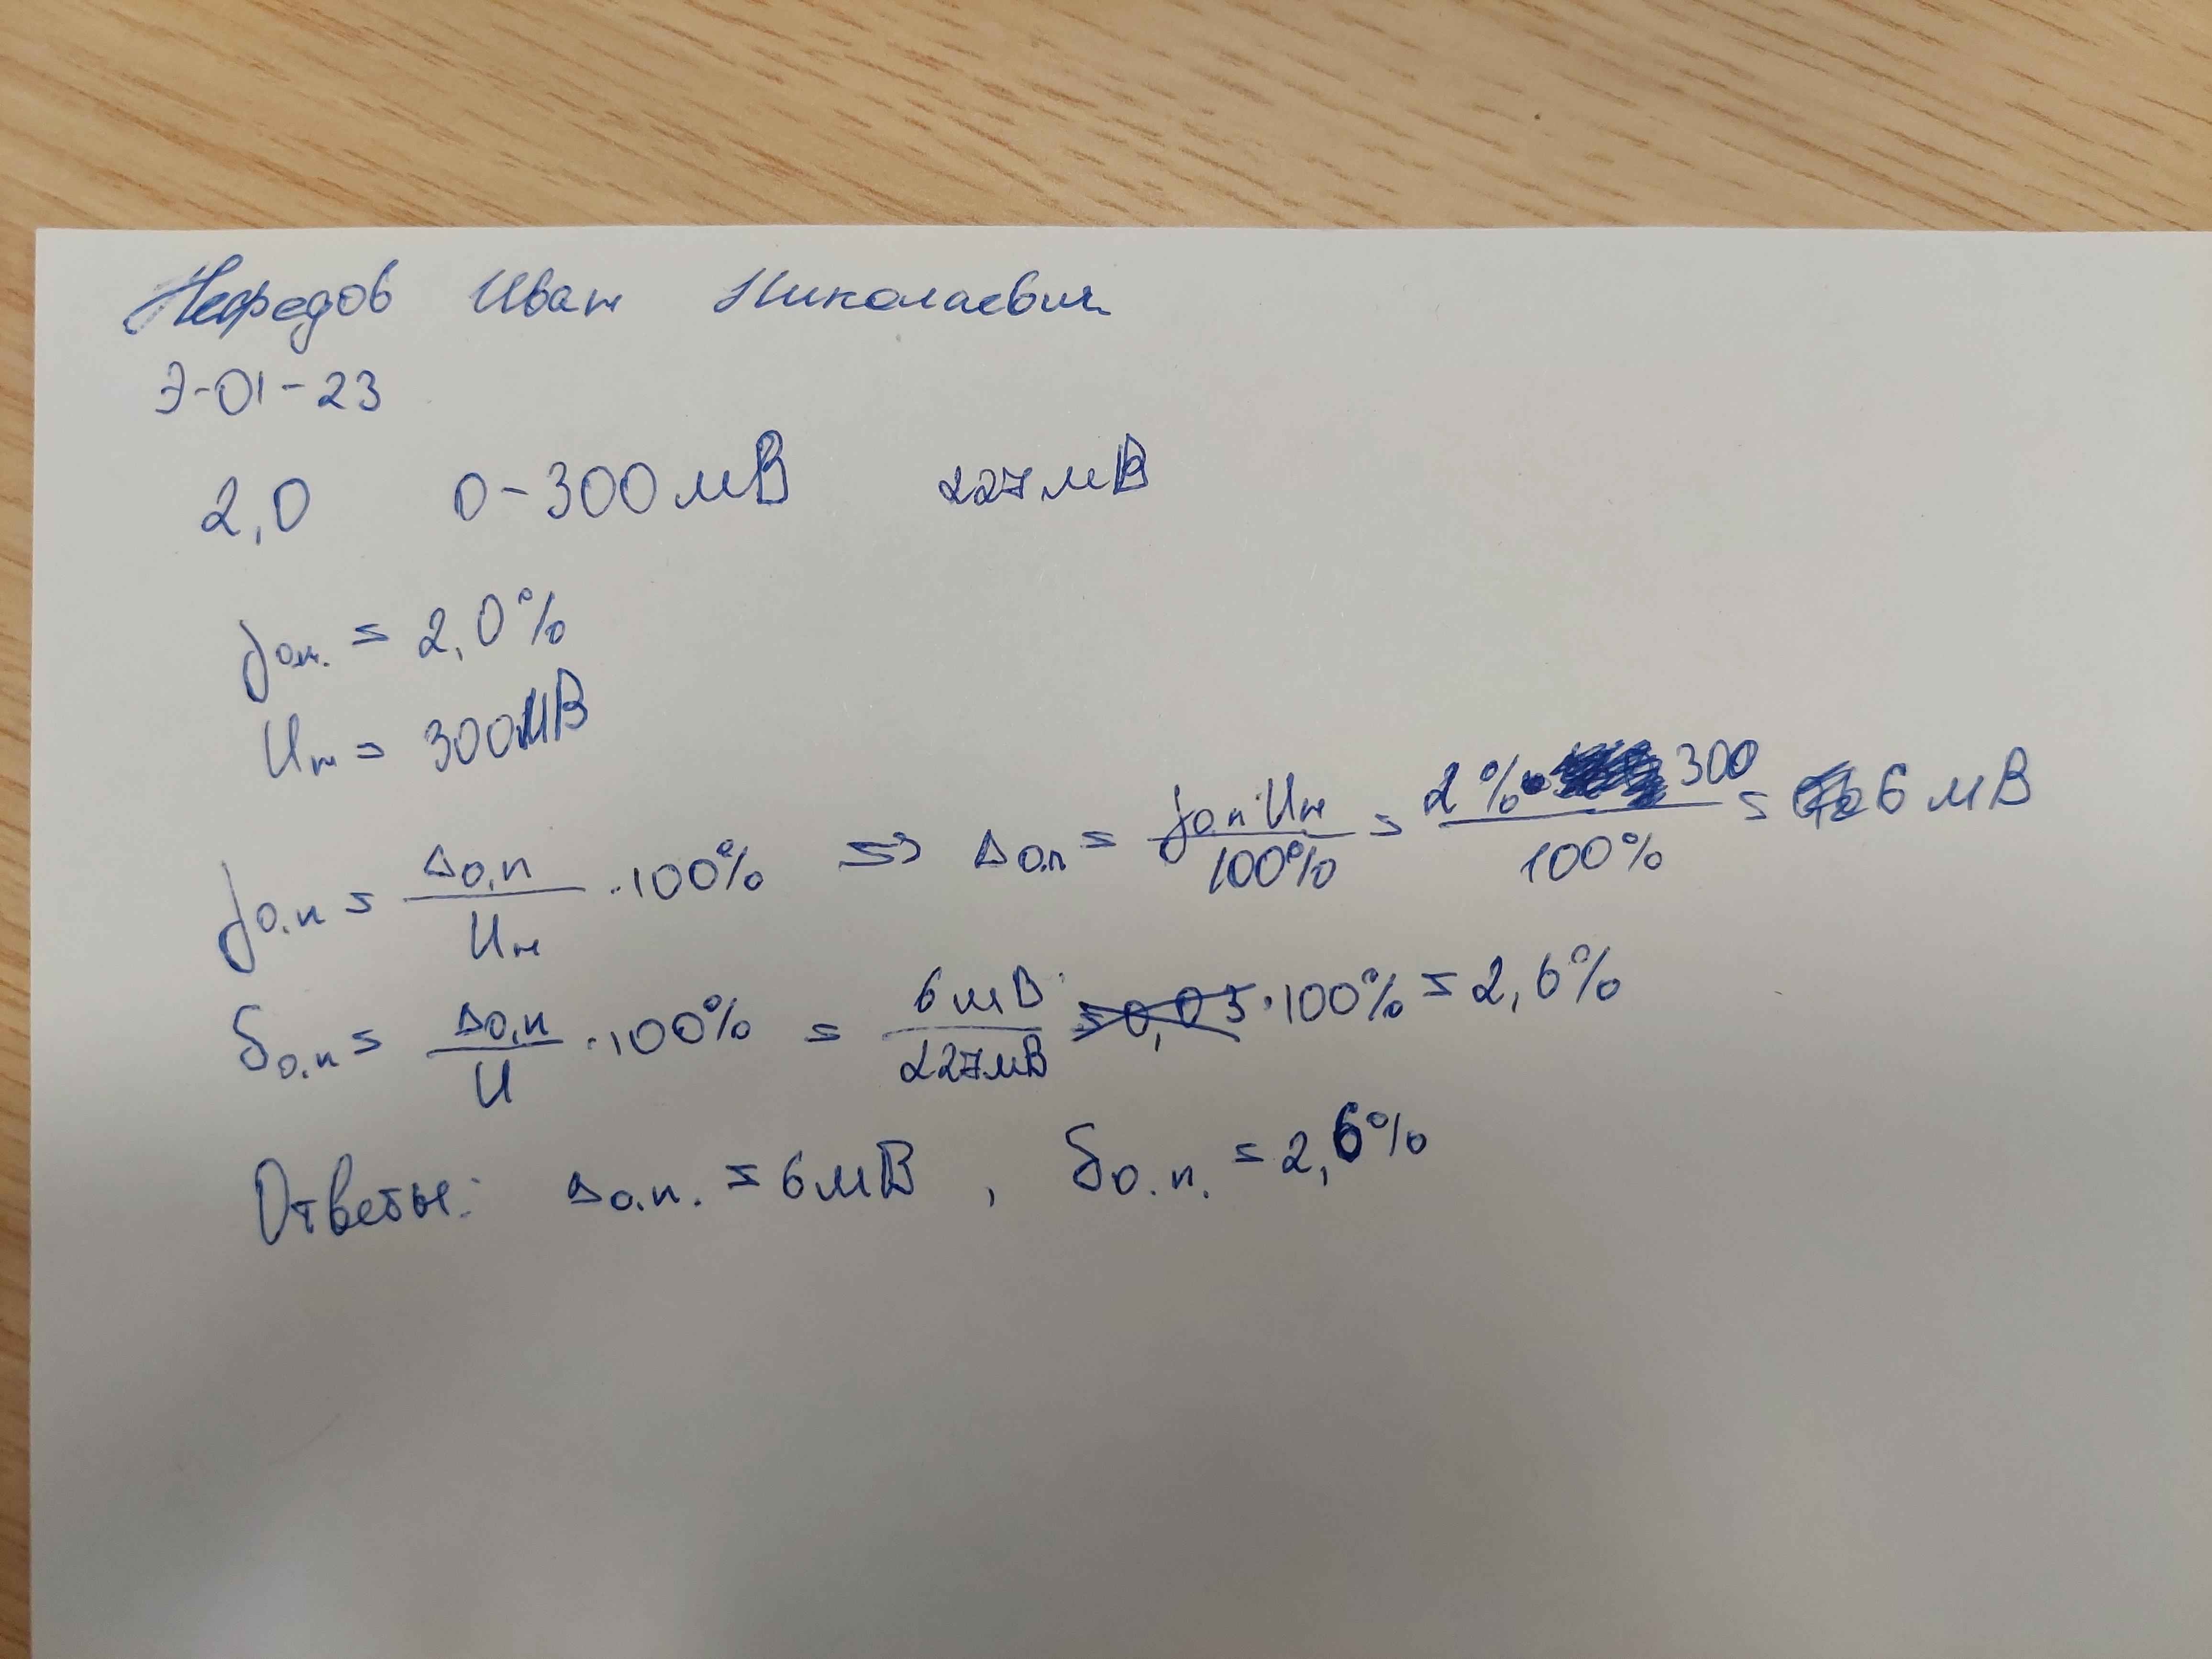 Нефедов Иван Николаевич
Э-01-23
2,0 0-300мВ 227мВ
γо.п. = 2,0%
Uн = 300мВ
γо.п = Δо.п / Uн · 100% => Δо.п = γо.п · Uн / 100% = 2% · 300 / 100% = 6 мВ
δо.п = Δо.п / U · 100% = 6мВ / 227мВ = 0,03 · 100% = 2,6%
Ответы: Δо.п. = 6мВ , δо.п. = 2,6%